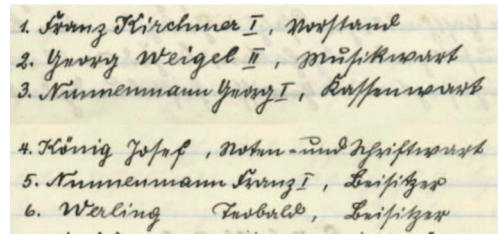 1. Franz Kirchmer I, Vorstand
2. Georg Weigel II, Musikwart
3. Nunnenmann Georg I, Kassenwart
4. König Josef, Noten-und Schriftwart
5. Nunnenmann Franz I, Beisitzer
6. Werling Teobald, Beisitzer